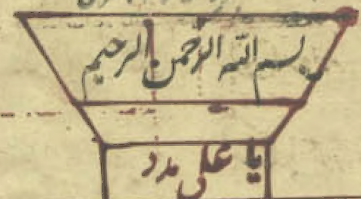 بسم الله الرحمن الرحیم
یا علی مدد